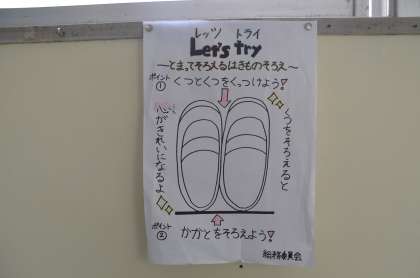 レッツ トライ
Let's try
〜とまってそろえるはきものそろえ〜
ポイント
①
くつとくつをくっつけよう!
くつをそろえると
心が
きれいになるよ
ポイント
②
かかとをそろえよう!
総務委員会